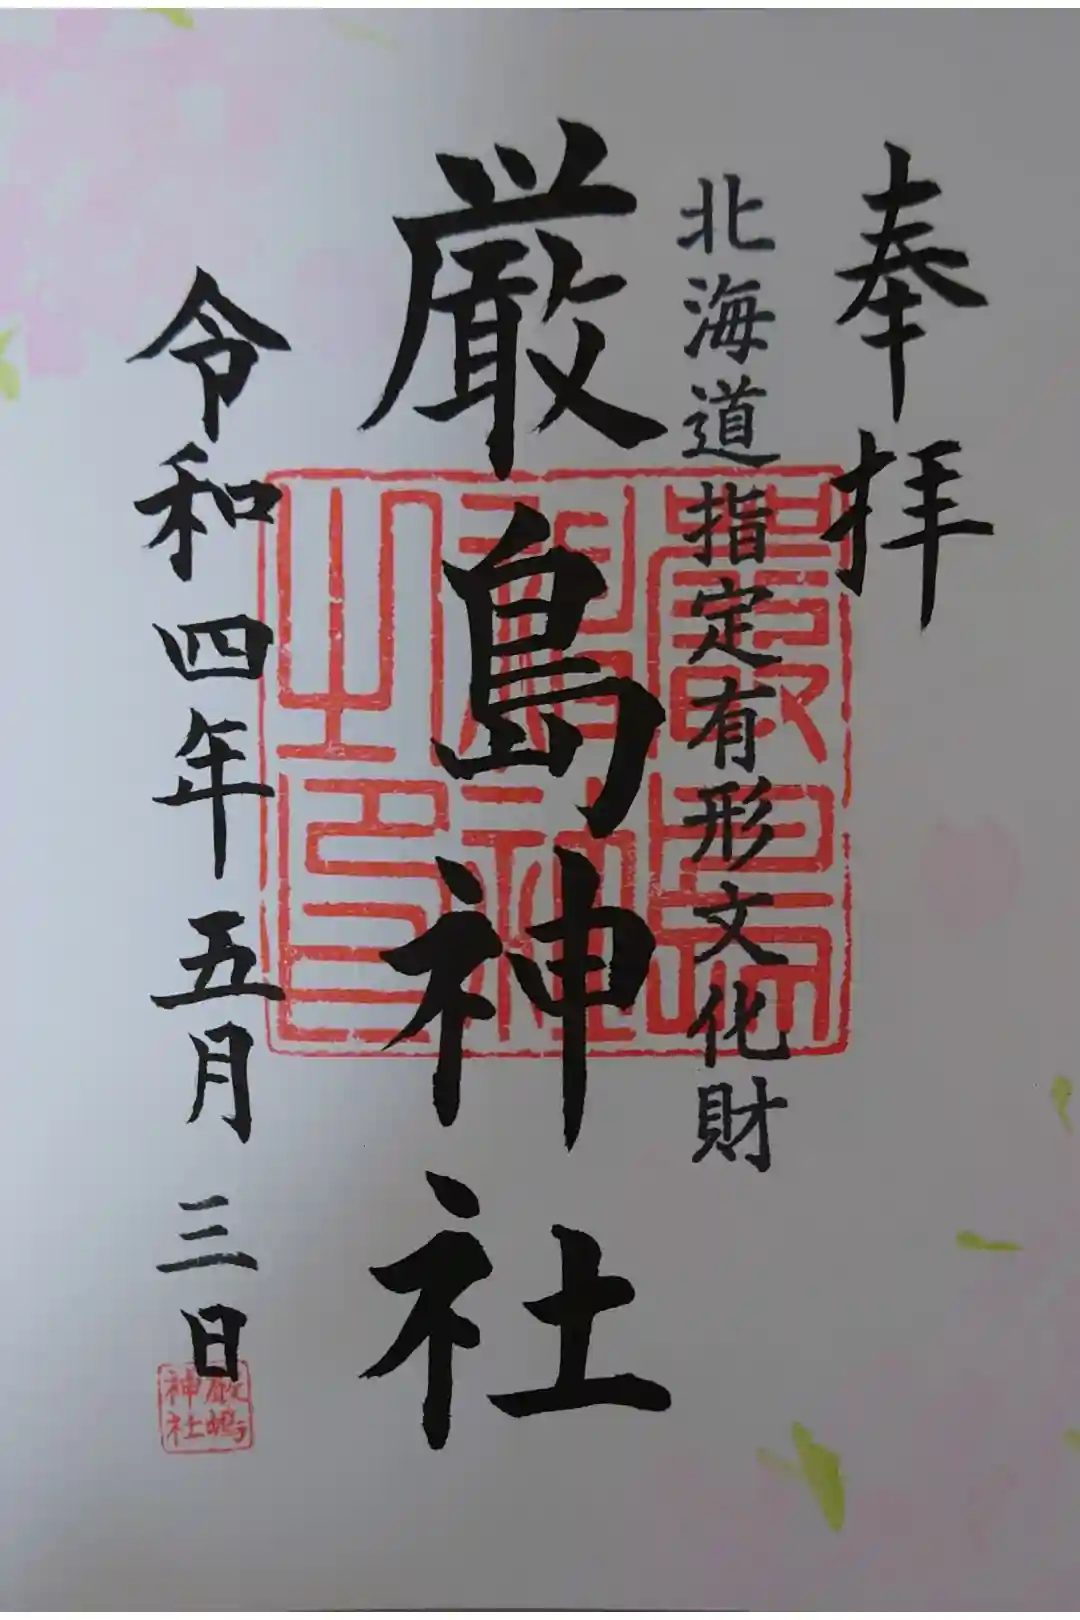 奉拝
北海道指定有形文化財
厳島神社
令和四年五月三日
厳島神社之印